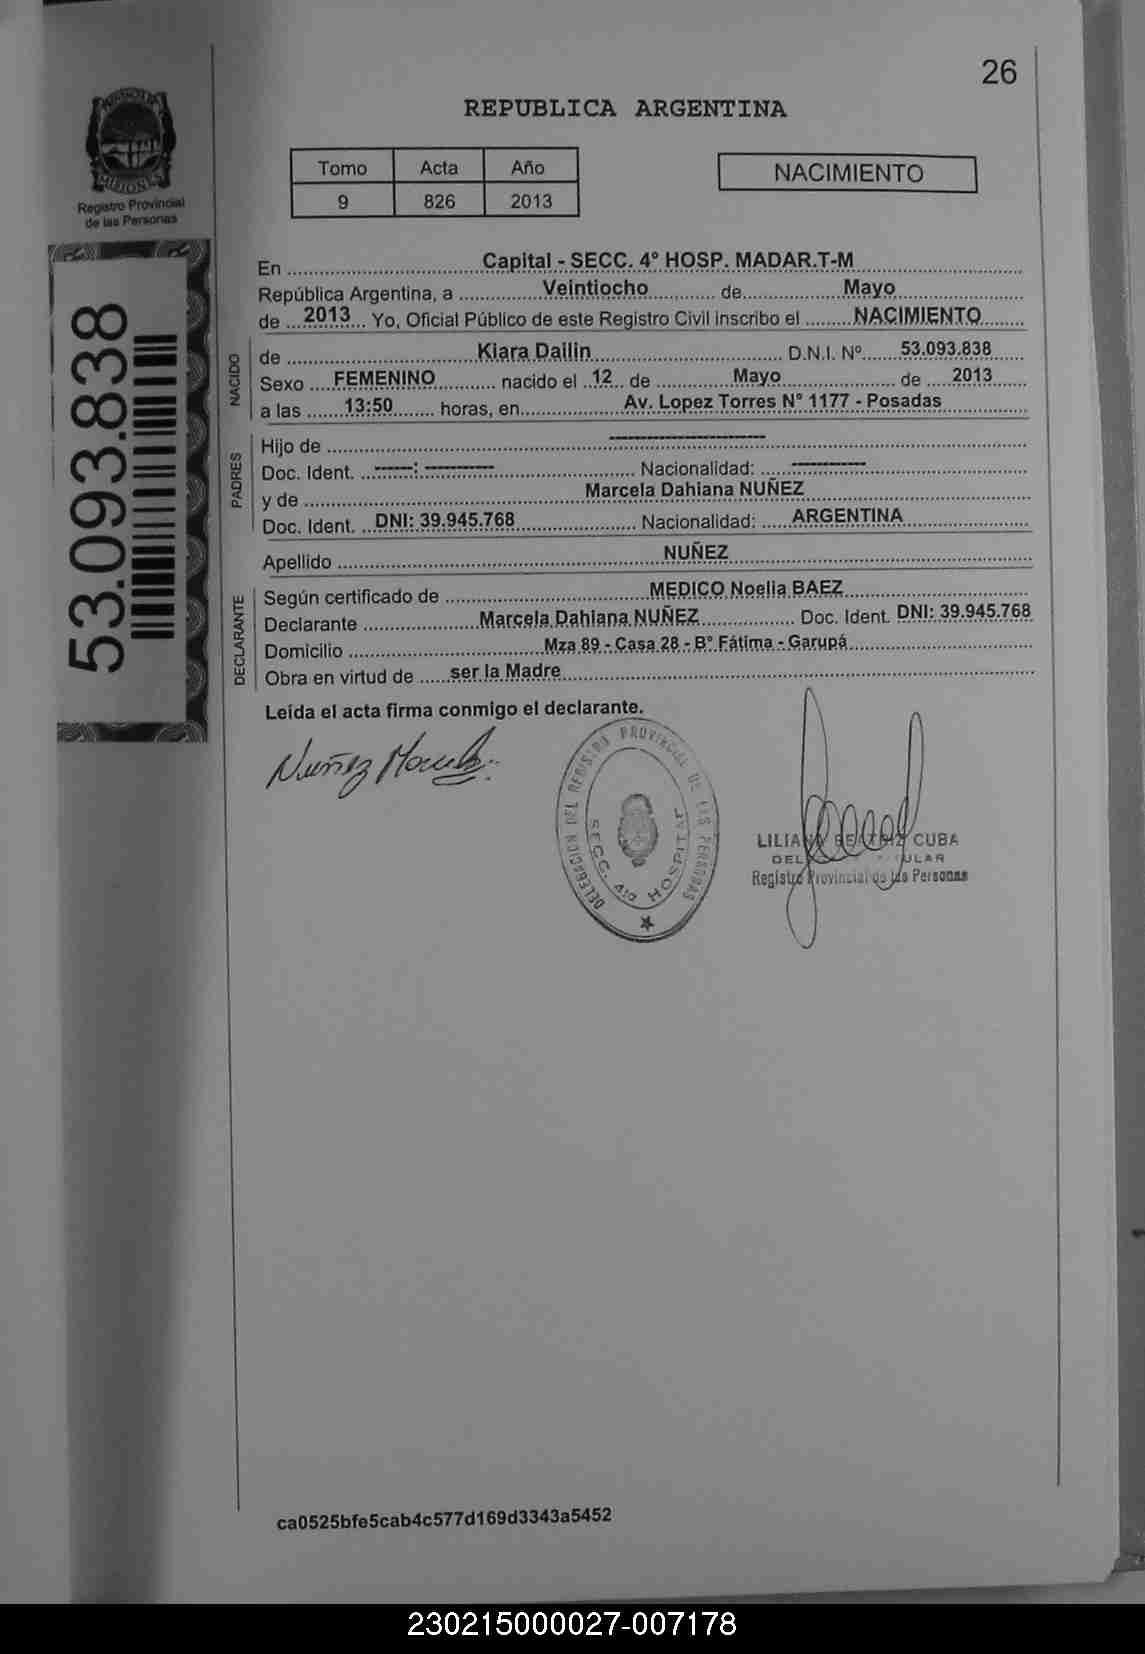 26
PROVINCIA DE
MISIONES
Registro Provincial
de las Personas
REPUBLICA ARGENTINA
Tomo Acta Año
9 826 2013
NACIMIENTO
53.093.838
En Capital - SECC. 4º HOSP. MADAR.T-M
República Argentina, a Veintiocho de Mayo
de 2013 Yo, Oficial Público de este Registro Civil inscribo el NACIMIENTO
NACIDO
de Kiara Dailin D.N.I. Nº 53.093.838
Sexo FEMENINO nacido el 12 de Mayo de 2013
a las 13:50 horas, en Av. Lopez Torres N° 1177 - Posadas
PADRES
Hijo de --------------------
Doc. Ident. ------: ---------- Nacionalidad: ----------
y de Marcela Dahiana NUÑEZ
Doc. Ident. DNI: 39.945.768 Nacionalidad: ARGENTINA
Apellido NUÑEZ
DECLARANTE
Según certificado de MEDICO Noelia BAEZ
Declarante Marcela Dahiana NUÑEZ Doc. Ident. DNI: 39.945.768
Domicilio Mza 89 - Casa 28 - B° Fátima - Garupá
Obra en virtud de ser la Madre
Leída el acta firma conmigo el declarante.
Nuñez
DELEGACION DEL REGISTRO PROVINCIAL DE LAS PERSONAS
SECC. 4ta HOSPITAL
LILIANA BEATRIZ CUBA
Registro Provincial de las Personas
ca0525bfe5cab4c577d169d3343a5452
230215000027-007178